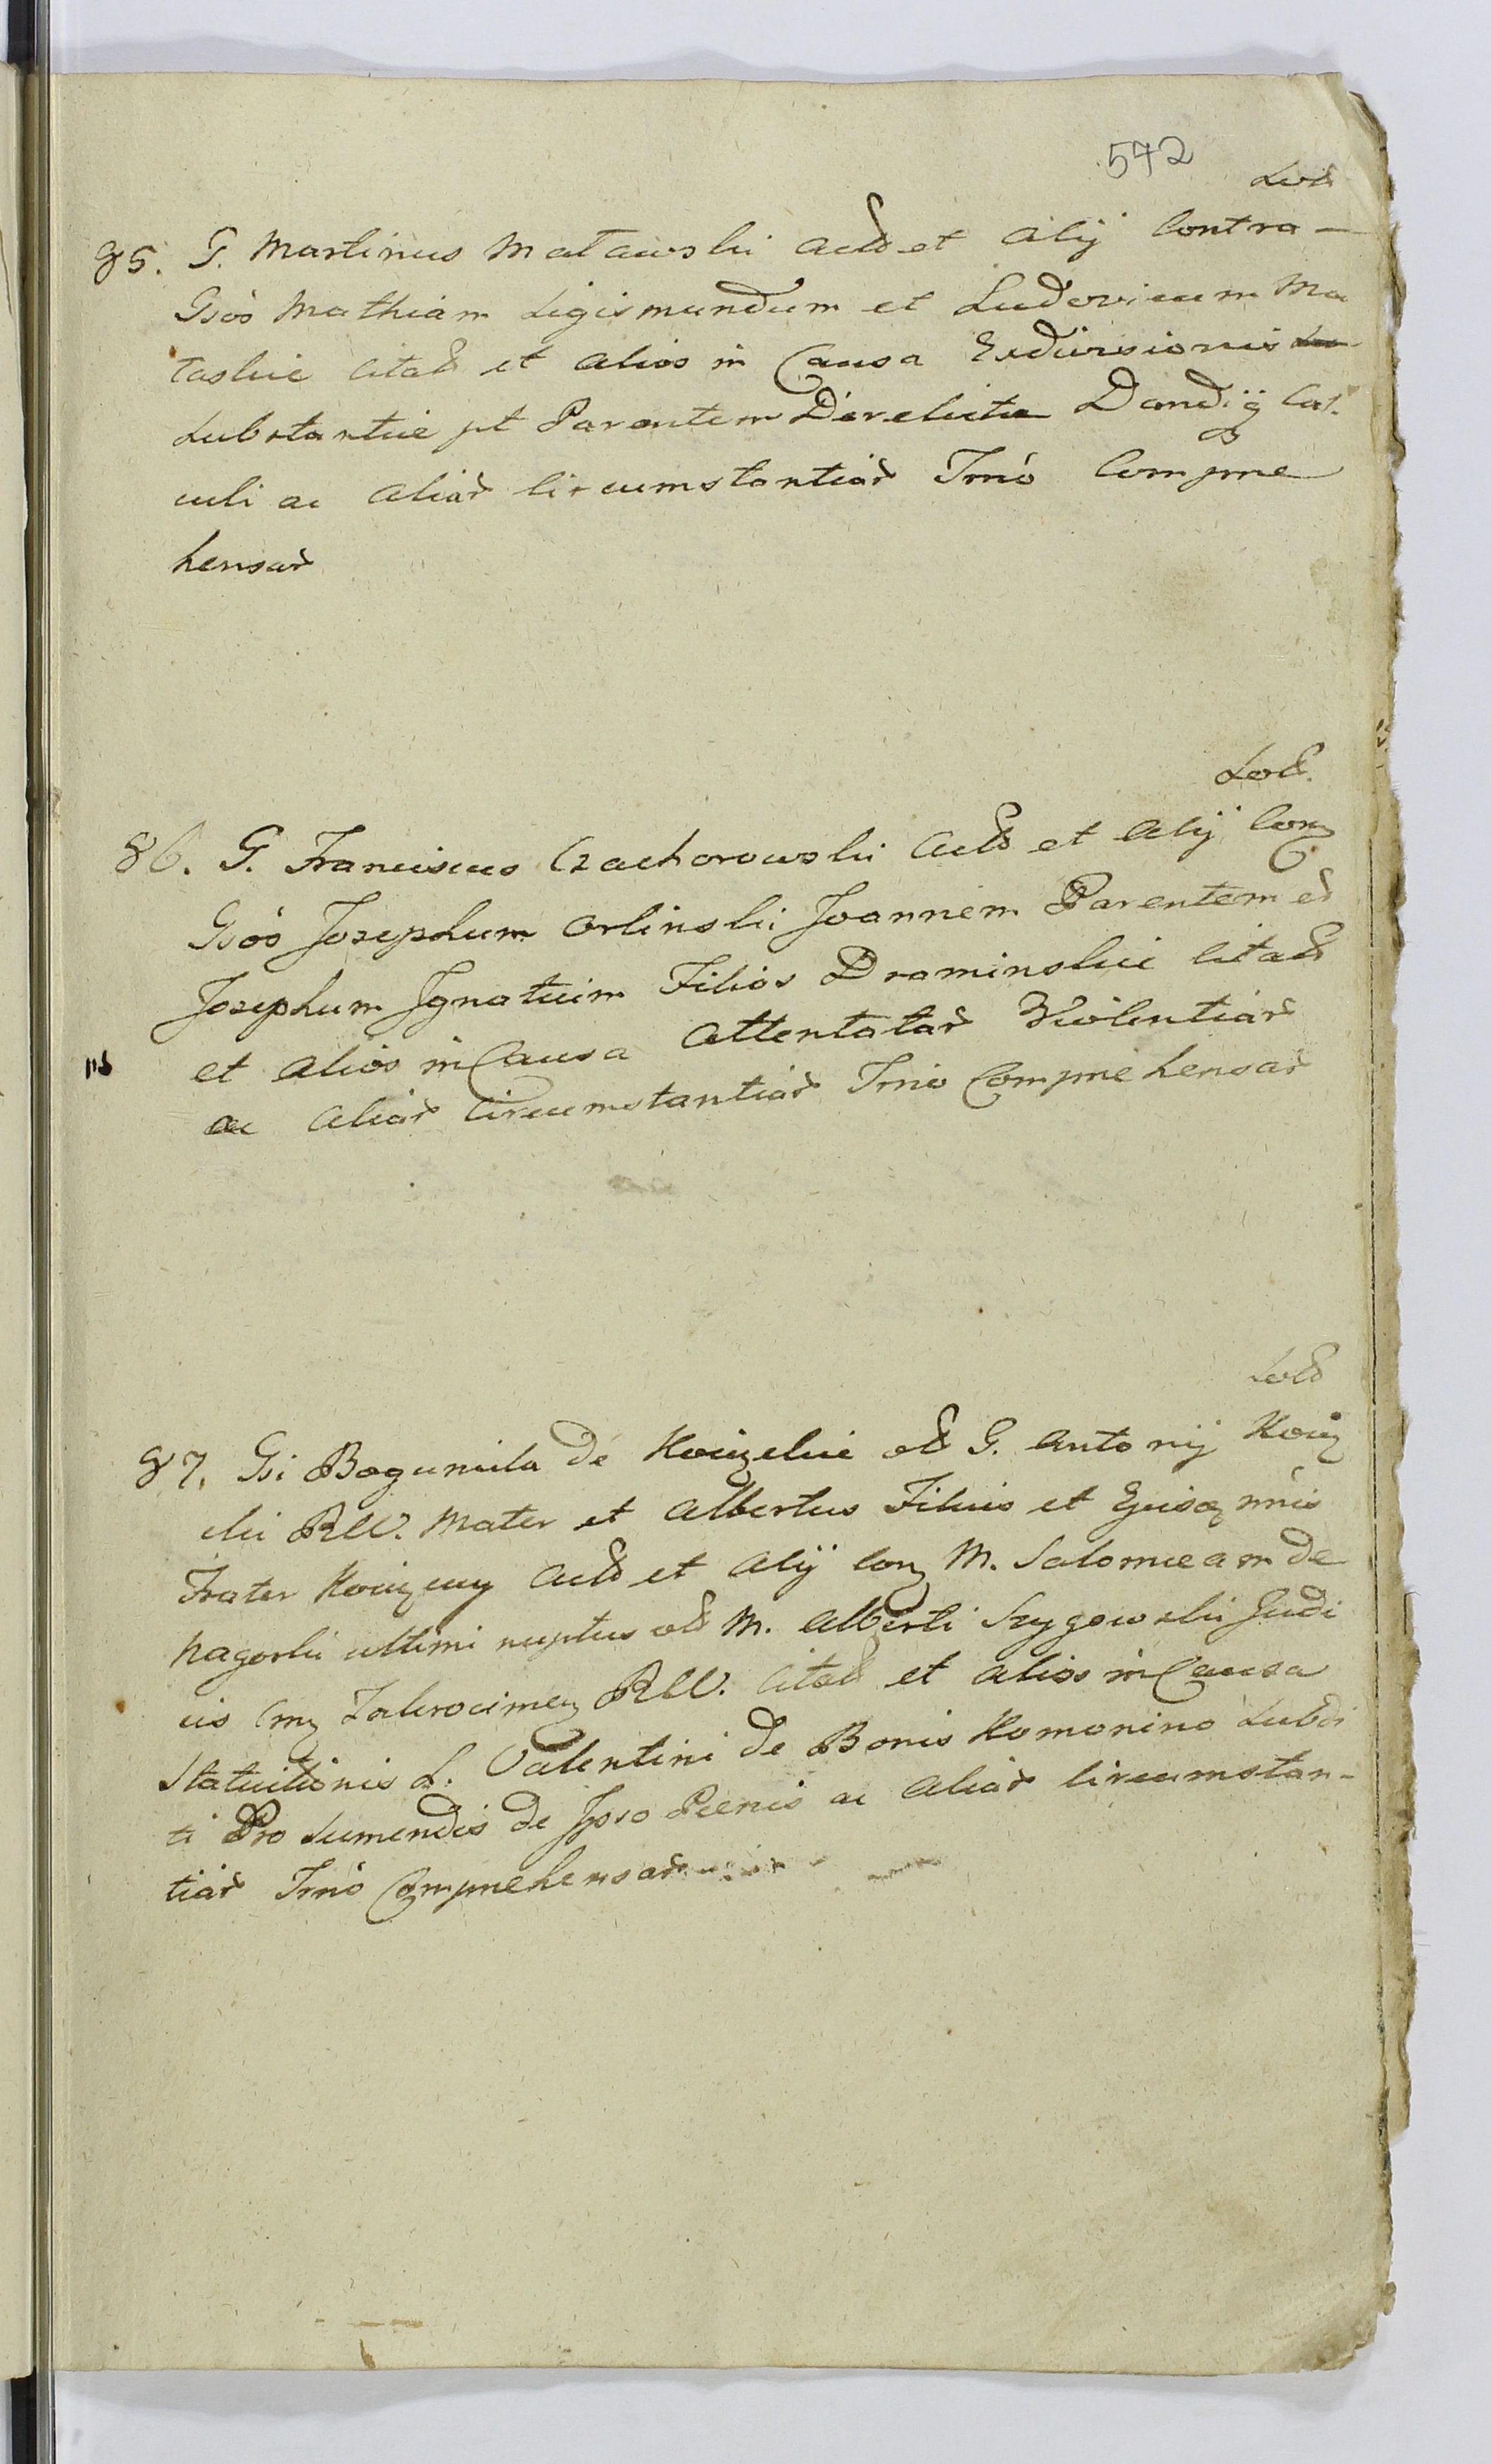 542
85. G. Martinus Matawski Actt et alij Contra —
Gsos Mathiam Sigismundum et Ludovicum Ma
taskie Citatt et alios in Causa Exdivisionis
Substantiæ pt Parentem Derelictæ Dandiq Cal-
culi ac aliar Circumstantiar Trnio Compre
hensar
86. G. Franciscus Czachorowski Actt et alij Con
Gsos Josephum Orlinski Joannem Parentem et
Josephum Ignatium Filios Draminskie Citatt
et alios in Causa Attentatar Violentiar
ac aliar Circumstantiar Trnio Comprehensar
87. Gsi Bogumila de ol G. Antonij
ski Rll. Mater et Albertus Filius et Ejusq
Frater Actt et alij Con M. Salomeam de
Nagorki ultimi nuptus ol M. Alberti Szygowski Judi
cis Zakrocimen Rll. Citatt et alios in Causa
Statuitionis L. Valentini de Bonis Komonino Subdi
ti Pro Sumendis de Ipso Pænis ac aliar Circumstan-
tiar Trnio Comprehensar